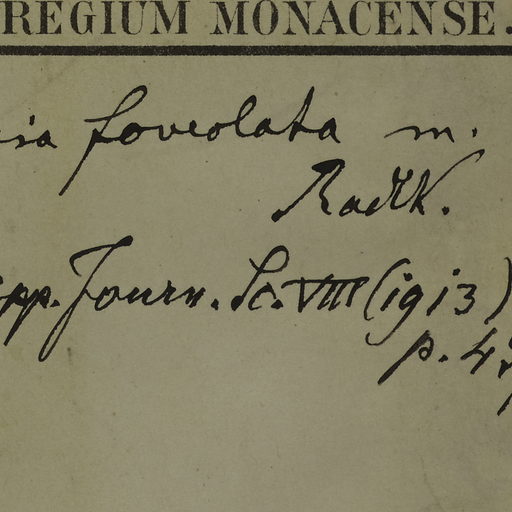 REGIUM MONACENSE.
foveolata m.
Radlk.
Journ. Sc. VIII (1913)
p. 4